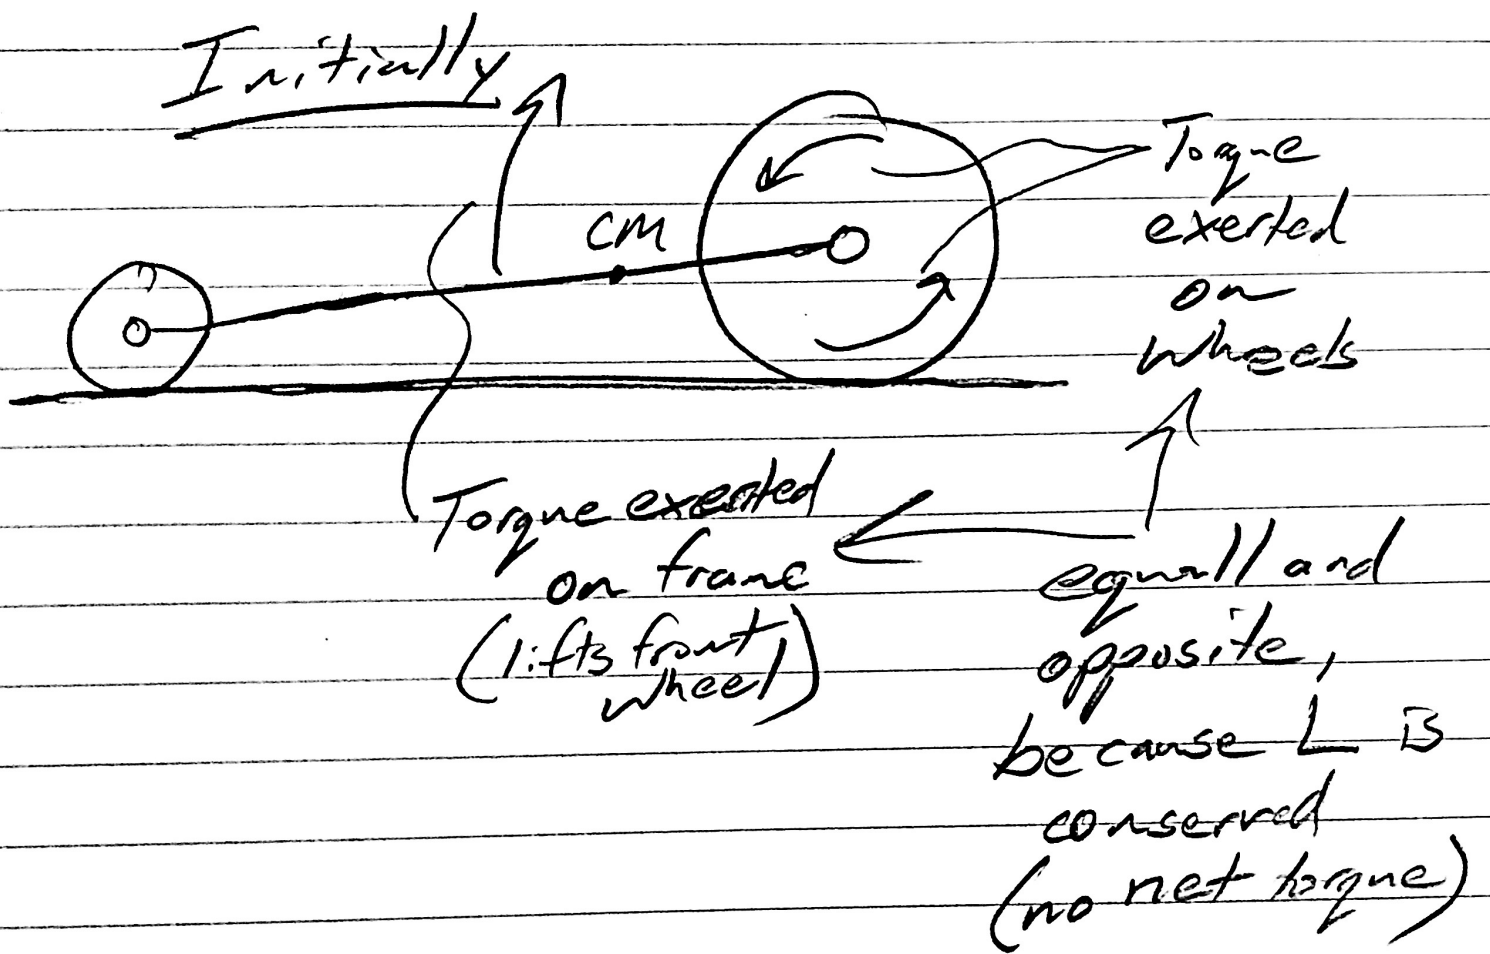 Initially
CM
Torque
exerted
on
wheels
Torque exerted
on frame
(lifts front
wheel)
equall and
opposite,
because L is
conserved
(no net torque)